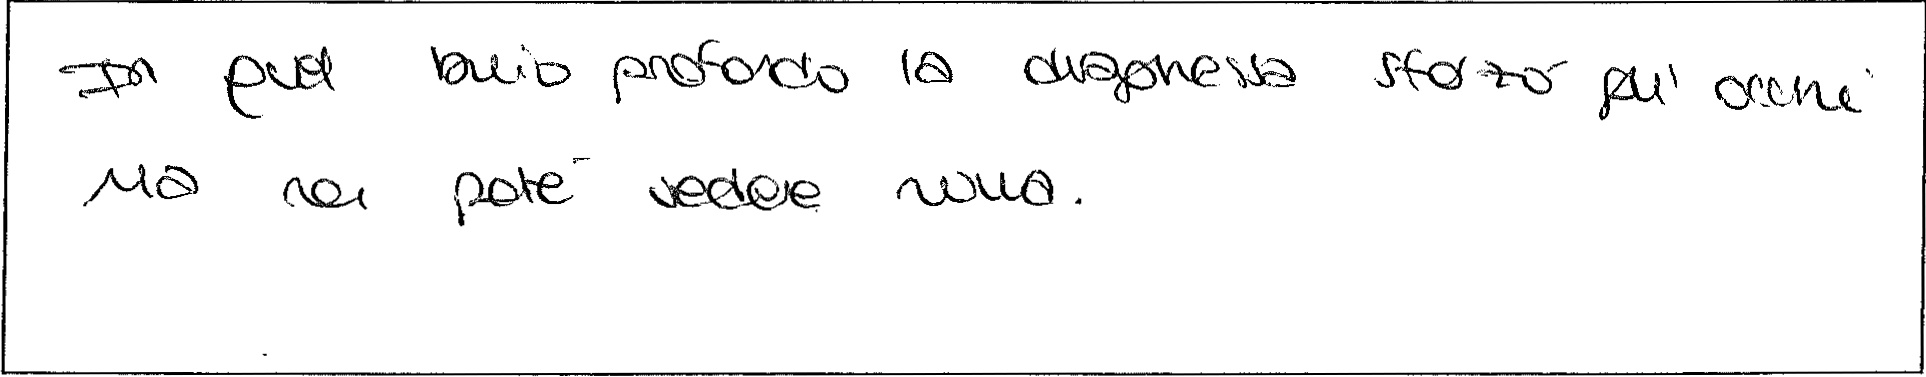 In quel buio profondo la dragonessa sforzò gli occhi
ma non poté vedere nulla.